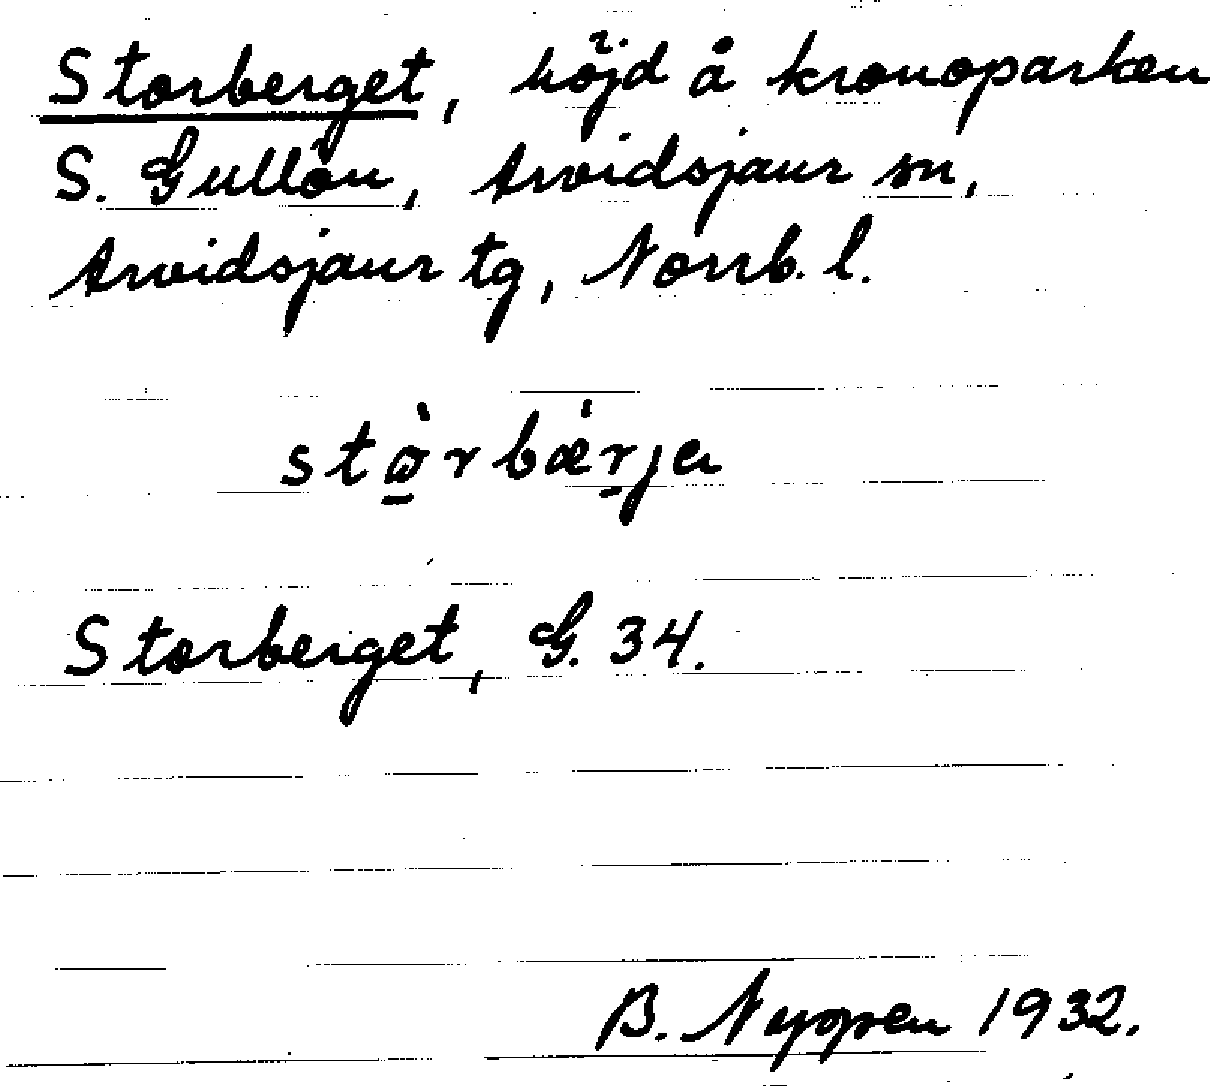 Storberget, höjd å kronoparken
S. Gullön, Arvidsjaur sn,
Arvidsjaur tg, Norrb. l.
stɷ̀rbæ̀rja
Storberget, G. 34.
B. Nyppen 1932.